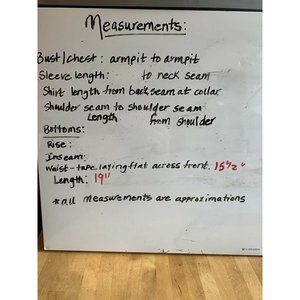 Measurements:
Bust/chest: armpit to armpit
Sleeve length: to neck seam
Shirt length from back seam at collar
Shoulder seam to shoulder seam
Length from shoulder
Bottoms:
Rise:
Inseam:
Waist-tape laying flat across front. 15 1/2"
Length: 19"
*all measurements are approximations